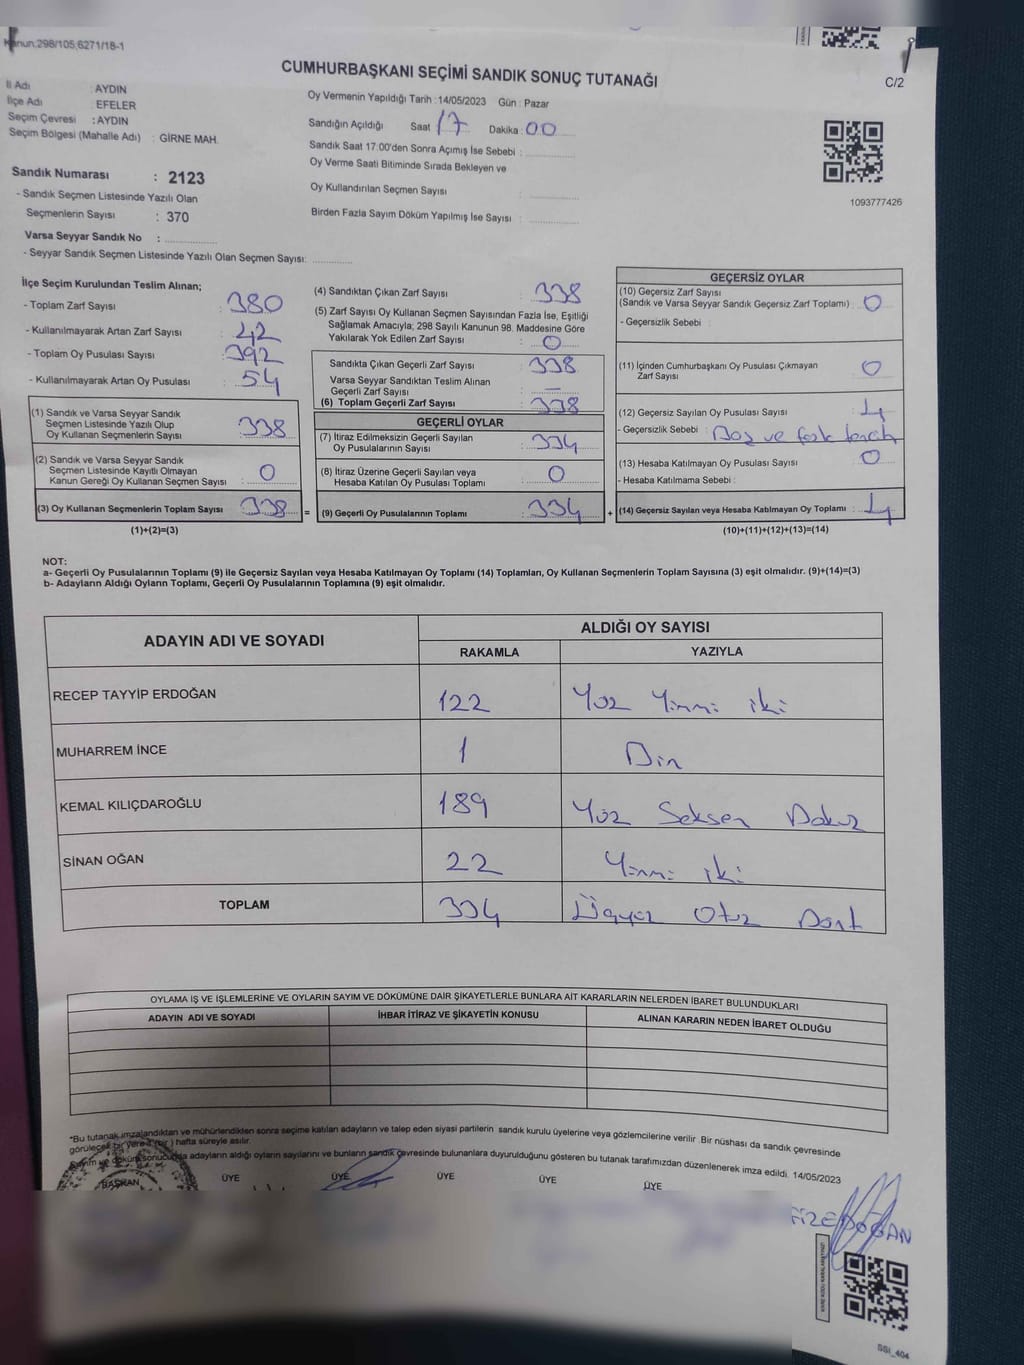 Kanun:298/105,6271/18-1
CUMHURBAŞKANI SEÇİMİ SANDIK SONUÇ TUTANAĞI
C/2
İl Adı : AYDIN
İlçe Adı : EFELER
Seçim Çevresi : AYDIN
Seçim Bölgesi (Mahalle Adı) : GİRNE MAH.
Oy Vermenin Yapıldığı Tarih :14/05/2023 Gün : Pazar
Sandığın Açıldığı Saat 17 Dakika : 00
Sandık Saat 17:00'den Sonra Açımış İse Sebebi :
Oy Verme Saati Bitiminde Sırada Bekleyen ve
Oy Kullandırılan Seçmen Sayısı :
Birden Fazla Sayım Döküm Yapılmış İse Sayısı :
1093777426
Sandık Numarası : 2123
- Sandık Seçmen Listesinde Yazılı Olan
Seçmenlerin Sayısı : 370
Varsa Seyyar Sandık No :
- Seyyar Sandık Seçmen Listesinde Yazılı Olan Seçmen Sayısı:
İlçe Seçim Kurulundan Teslim Alınan;
- Toplam Zarf Sayısı : 380
- Kullanılmayarak Artan Zarf Sayısı : 42
- Toplam Oy Pusulası Sayısı : 392
- Kullanılmayarak Artan Oy Pusulası : 54
(1) Sandık ve Varsa Seyyar Sandık
Seçmen Listesinde Yazılı Olup
Oy Kullanan Seçmenlerin Sayısı : 338
(2) Sandık ve Varsa Seyyar Sandık
Seçmen Listesinde Kayıtlı Olmayan
Kanun Gereği Oy Kullanan Seçmen Sayısı : 0
(3) Oy Kullanan Seçmenlerin Toplam Sayısı : 338
(1)+(2)=(3)
(4) Sandıktan Çıkan Zarf Sayısı : 338
(5) Zarf Sayısı Oy Kullanan Seçmen Sayısından Fazla İse, Eşitliği
Sağlamak Amacıyla; 298 Sayılı Kanunun 98. Maddesine Göre
Yakılarak Yok Edilen Zarf Sayısı : 0
Sandıkta Çıkan Geçerli Zarf Sayısı : 338
Varsa Seyyar Sandıktan Teslim Alınan
Geçerli Zarf Sayısı : —
(6) Toplam Geçerli Zarf Sayısı : 338
GEÇERLİ OYLAR
(7) İtiraz Edilmeksizin Geçerli Sayılan
Oy Pusulalarının Sayısı : 334
(8) İtiraz Üzerine Geçerli Sayılan veya
Hesaba Katılan Oy Pusulası Toplamı : 0
= (9) Geçerli Oy Pusulalarının Toplamı : 334
GEÇERSİZ OYLAR
(10) Geçersiz Zarf Sayısı
(Sandık ve Varsa Seyyar Sandık Geçersiz Zarf Toplamı) : 0
- Geçersizlik Sebebi :
(11) İçinden Cumhurbaşkanı Oy Pusulası Çıkmayan
Zarf Sayısı : 0
(12) Geçersiz Sayılan Oy Pusulası Sayısı : 4
- Geçersizlik Sebebi : Boş ve fazla tercih
(13) Hesaba Katılmayan Oy Pusulası Sayısı : 0
- Hesaba Katılmama Sebebi :
+ (14) Geçersiz Sayılan veya Hesaba Katılmayan Oy Toplamı : 4
(10)+(11)+(12)+(13)=(14)
NOT:
a- Geçerli Oy Pusulalarının Toplamı (9) ile Geçersiz Sayılan veya Hesaba Katılmayan Oy Toplamı (14) Toplamları, Oy Kullanan Seçmenlerin Toplam Sayısına (3) eşit olmalıdır. (9)+(14)=(3)
b- Adayların Aldığı Oyların Toplamı, Geçerli Oy Pusulalarının Toplamına (9) eşit olmalıdır.
ADAYIN ADI VE SOYADI
ALDIĞI OY SAYISI
RAKAMLA YAZIYLA
RECEP TAYYİP ERDOĞAN 122 Yüz Yirmi iki
MUHARREM İNCE 1 Bir
KEMAL KILIÇDAROĞLU 189 Yüz Seksen Dokuz
SİNAN OĞAN 22 Yirmi iki
TOPLAM 334 Üçyüz Otuz Dört
OYLAMA İŞ VE İŞLEMLERİNE VE OYLARIN SAYIM VE DÖKÜMÜNE DAİR ŞİKAYETLERLE BUNLARA AİT KARARLARIN NELERDEN İBARET BULUNDUKLARI
ADAYIN ADI VE SOYADI İHBAR İTİRAZ VE ŞİKAYETİN KONUSU ALINAN KARARIN NEDEN İBARET OLDUĞU
*Bu tutanak imzalandıktan ve mühürlendikten sonra seçime katılan adayların ve talep eden siyasi partilerin sandık kurulu üyelerine veya gözlemcilerine verilir. Bir nüshası da sandık çevresinde
görülecek bir yere 1 (bir) hafta süreyle asılır.
Sayım ve döküm sonucunda adayların aldığı oyların sayılarını ve bunların sandık çevresinde bulunanlara duyurulduğunu gösteren bu tutanak tarafımızdan düzenlenerek imza edildi. 14/05/2023
BAŞKAN ÜYE ÜYE ÜYE ÜYE ÜYE
SSI_404